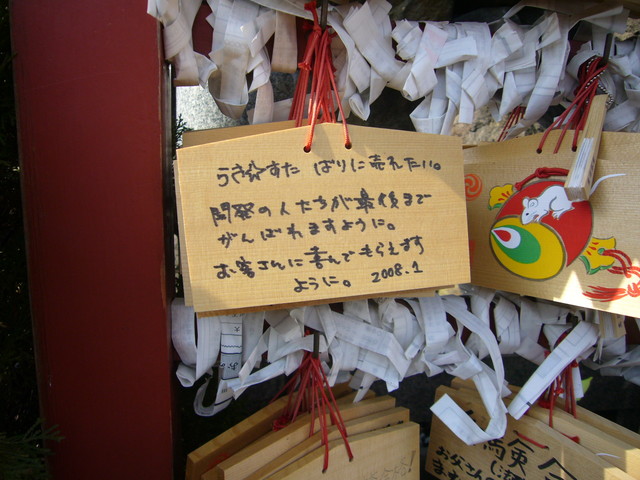 うさ☆すた ばりに売れたい。
開発の人たちが最後まで
がんばれますように。
お客さんに喜んでもらえます
ように。 2008.1
お父さん
ます